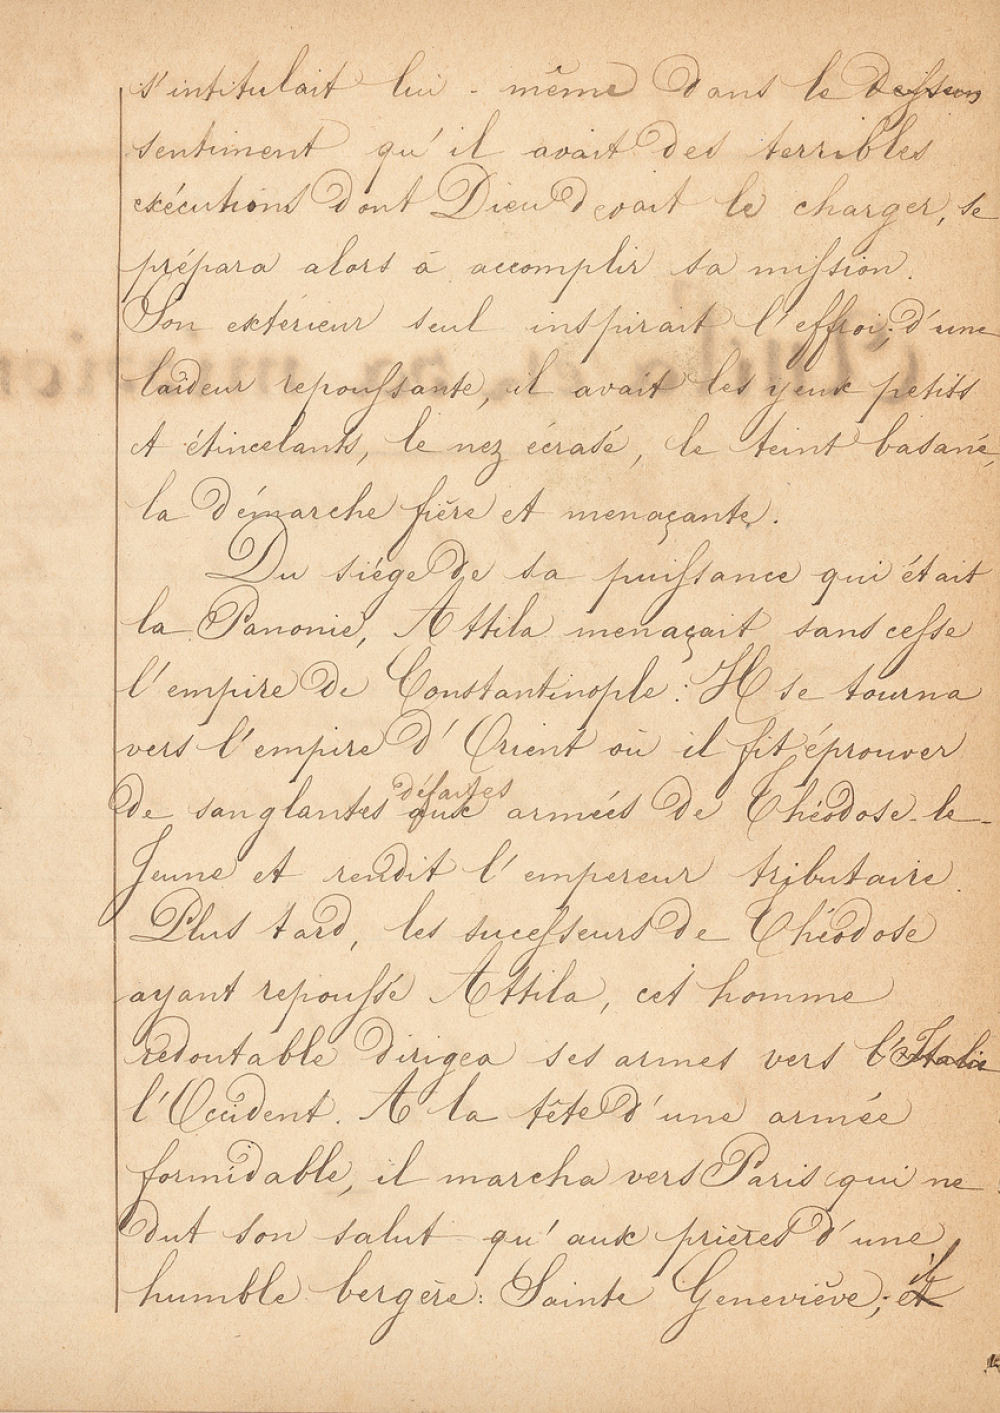 s'intitulait lui-même dans le dessein
sentiment qu'il avait des terribles
exécutions dont Dieu devait le charger, se
prépara alors à accomplir sa mission.
Son extérieur seul inspirait l'effroi; d'une
laideur repoussante, il avait les yeux petits
et étincelants, le nez écrasé, le teint basané,
la démarche fière et menaçante.
Du siége de sa puissance qui était
la Panonie, Attila menaçait sans cesse
l'empire de Constantinople: Il se tourna
vers l'empire d'Orient où il fit éprouver
défaites
de sanglantes aux armées de Théodose-le-
Jeune et rendit l'empereur tributaire.
Plus tard, les sucesseurs de Théodose
ayant repoussé Attila, cet homme
redoutable dirigea ses armes vers l'Italie
l'Occident. A la tête d'une armée
formidable, il marcha vers Paris qui ne
dut son salut qu'aux prières d'une
il
humble bergère: Sainte Geneviève; et